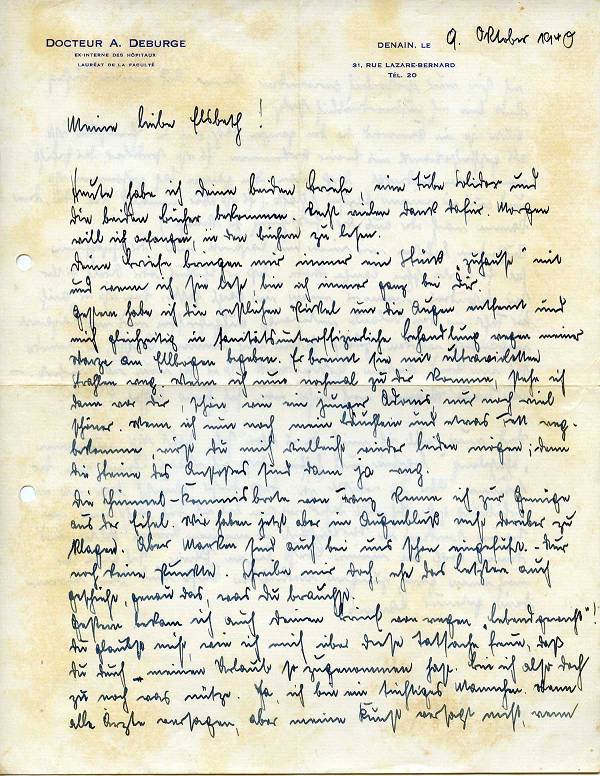 DOCTEUR A. DEBURGE
EX-INTERNE DES HÔPITAUX
LAURÉAT DE LA FACULTÉ
DENAIN, LE 9. Oktober 1940
31, RUE LAZARE-BERNARD
TÉL. 20
Meine liebe Elsbeth!
Heute habe ich deine beiden Briefe, eine Tube und
die beiden Bücher bekommen. Recht vielen Dank dafür. Morgen
will ich anfangen, in den Büchern zu lesen.
Deine Briefe bringen mir immer ein Stück "zuhause" mit
und wenn ich sie lese, bin ich immer ganz bei Dir.
Gestern habe ich die restlichen um die Augen entfernt und
mich gleichzeitig in sanitätsunteroffizierliche Behandlung wegen meiner
Warze am Ellbogen begeben. Er brennt sie mit ultravioletten
Strahlen weg. Wenn ich nun nochmal zu dir komme, stehe ich
dann vor dir, schön wie ein junger Adonis nur noch viel
schöner. Wenn ich nun noch mein Bäuchlein und etwas Fett weg-
bekomme, wirst du mich vielleicht wieder leiden mögen; denn
die Steine des Anstoßes sind dann ja weg.
Die Schimmel-Kommisbrote von Franz kenne ich zur Genüge
aus der Eifel. Wir haben jetzt aber im Augenblick nicht darüber zu
klagen. Aber Marken sind auch bei uns schon eingeführt. - Nur
noch keine Punkte. Schreibe mir doch, ehe das letztere auch
geschieht, genau das, was du brauchst.
Gestern bekam ich auch deinen Brief von wegen "Lebendgewicht"!
Du glaubst nicht, wie ich mich über diese Tatsache freue, daß
du durch meinen Urlaub so zugenommen hast. Bin ich also doch
zu noch was nütze. Ja, ich bin ein tüchtiges Männchen. Wenn
alle Ärzte versagen, aber meine Kunst versagt nicht, wenn